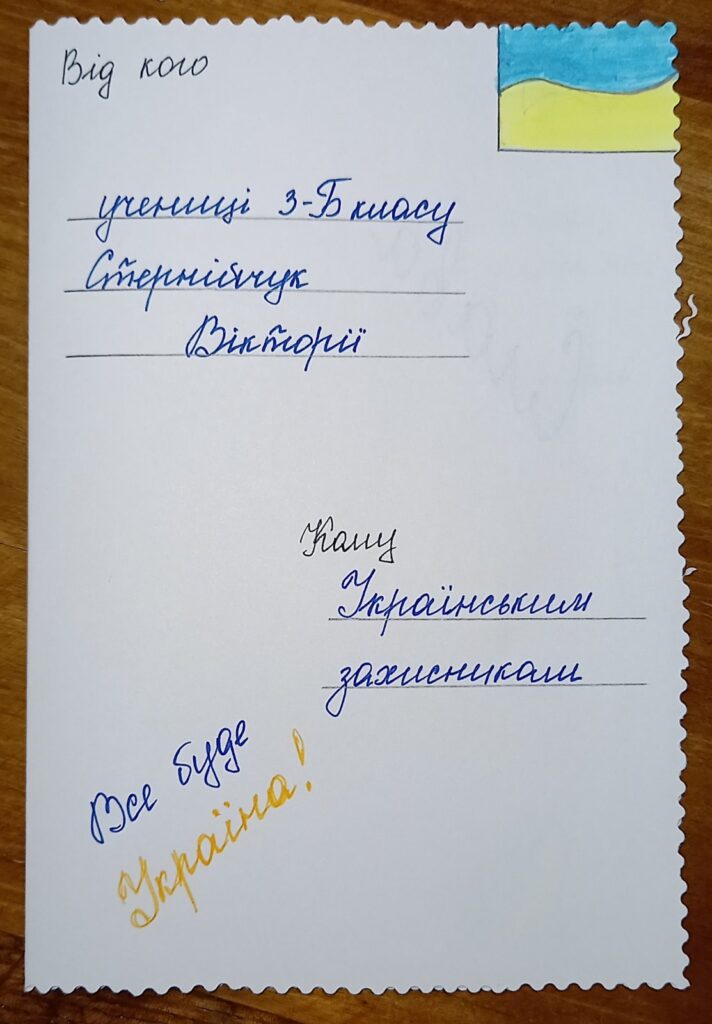 Від кого
учениці 3-Б класу
Стернійчук
Вікторії
Кому
Українським
захисникам
Все буде
Україна!